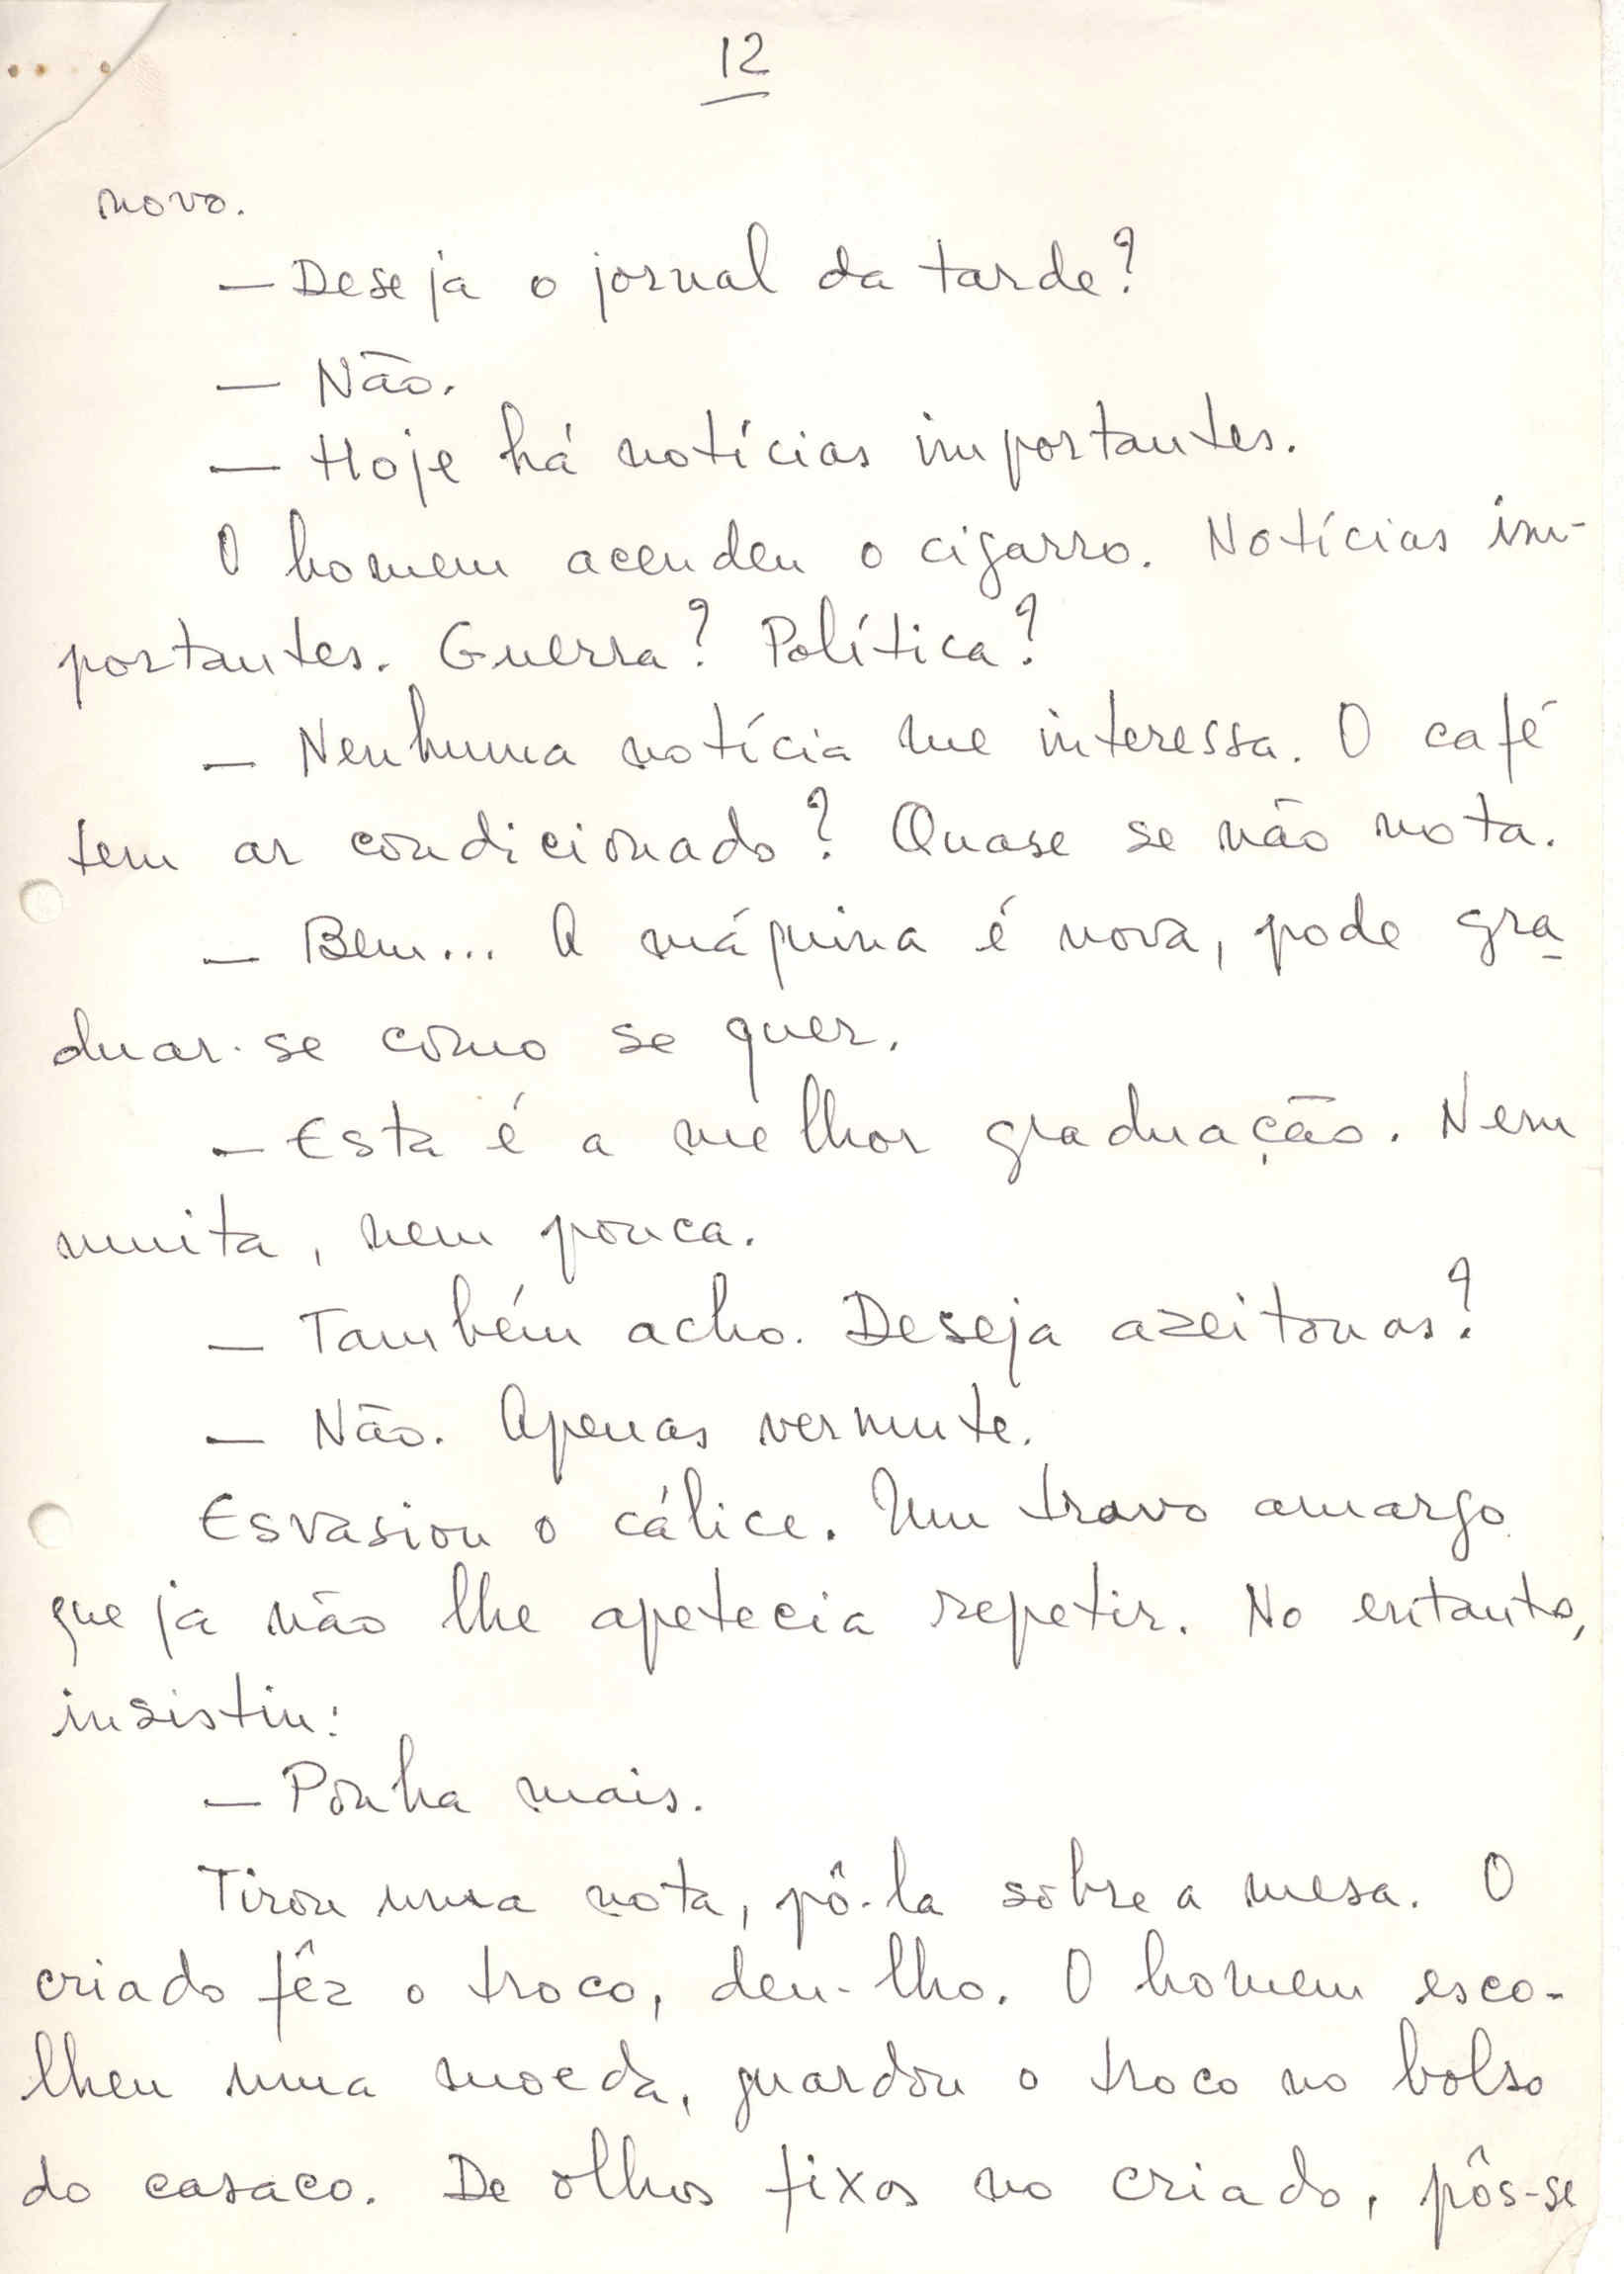 12
novo.
— Deseja o jornal da tarde?
— Não.
— Hoje há notícias importantes.
O homem acendeu o cigarro. Notícias im-
portantes. Guerra? Política?
— Nenhuma notícia me interessa. O café
tem ar condicionado? Quase se não nota.
— Bem... A máquina é nova, pode gra-
duar-se como se quer.
— Esta é a melhor graduação. Nem
muita, nem pouca.
— Também acho. Deseja azeitonas?
— Não. Apenas vermute.
Esvasiou o cálice. Um travo amargo
que já não lhe apetecia repetir. No entanto,
insistiu:
— Ponha mais.
Tirou uma nota, pô-la sobre a mesa. O
criado fêz o troco, deu-lho. O homem esco-
lheu uma moeda, guardou o troco no bolso
do casaco. De olhos fixos no criado, pôs-se